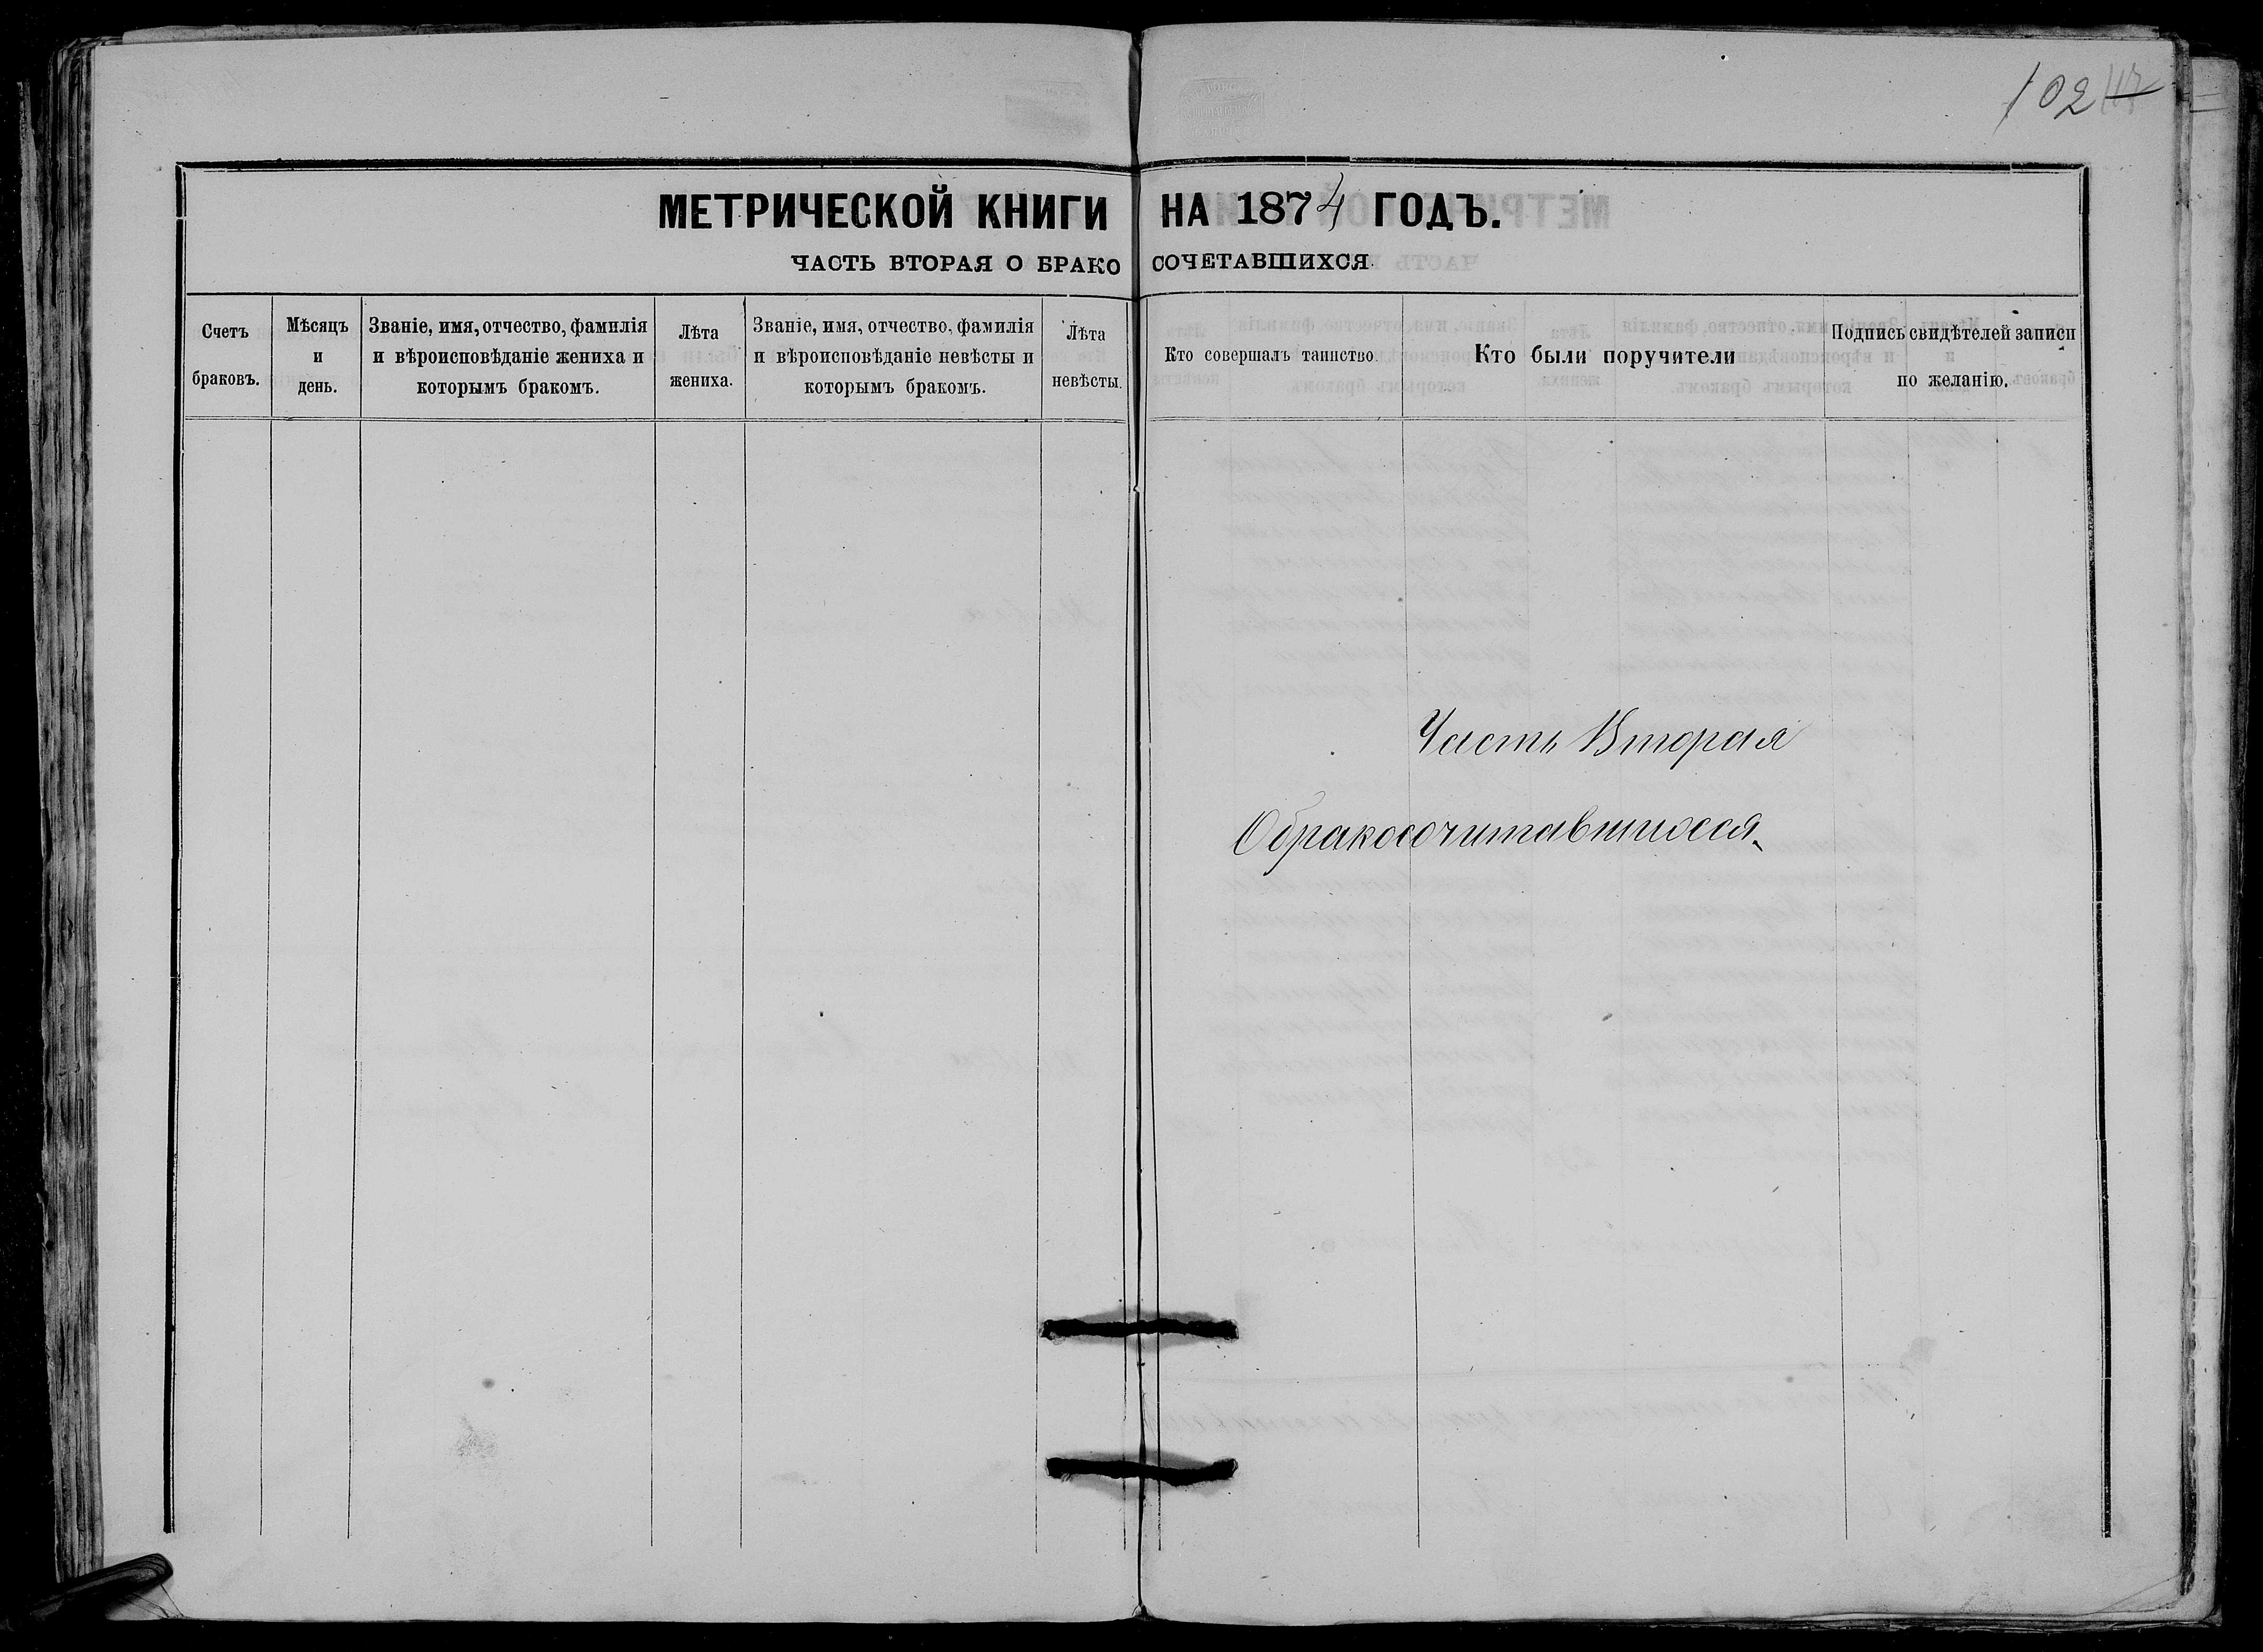 102
МЕТРИЧЕСКОЙ КНИГИ НА 1874 ГОДЪ.
ЧАСТЬ ВТОРАЯ О БРАКОСОЧЕТАВШИХСЯ.
Счетъ
браковъ.
Мѣсяцъ
и
день.
Званіе, имя, отчество, фамилія
и вѣроисповѣданіе жениха и
которымъ бракомъ.
Лѣта
жениха.
Званіе, имя, отчество, фамилія
и вѣроисповѣданіе невѣсты и
которымъ бракомъ.
Лѣта
невѣсты.
Кто совершалъ таинство.
Кто были поручители
Подпись свидѣтелей записи
по желанію.
Часть Вторая
Обракосочитавшихся.